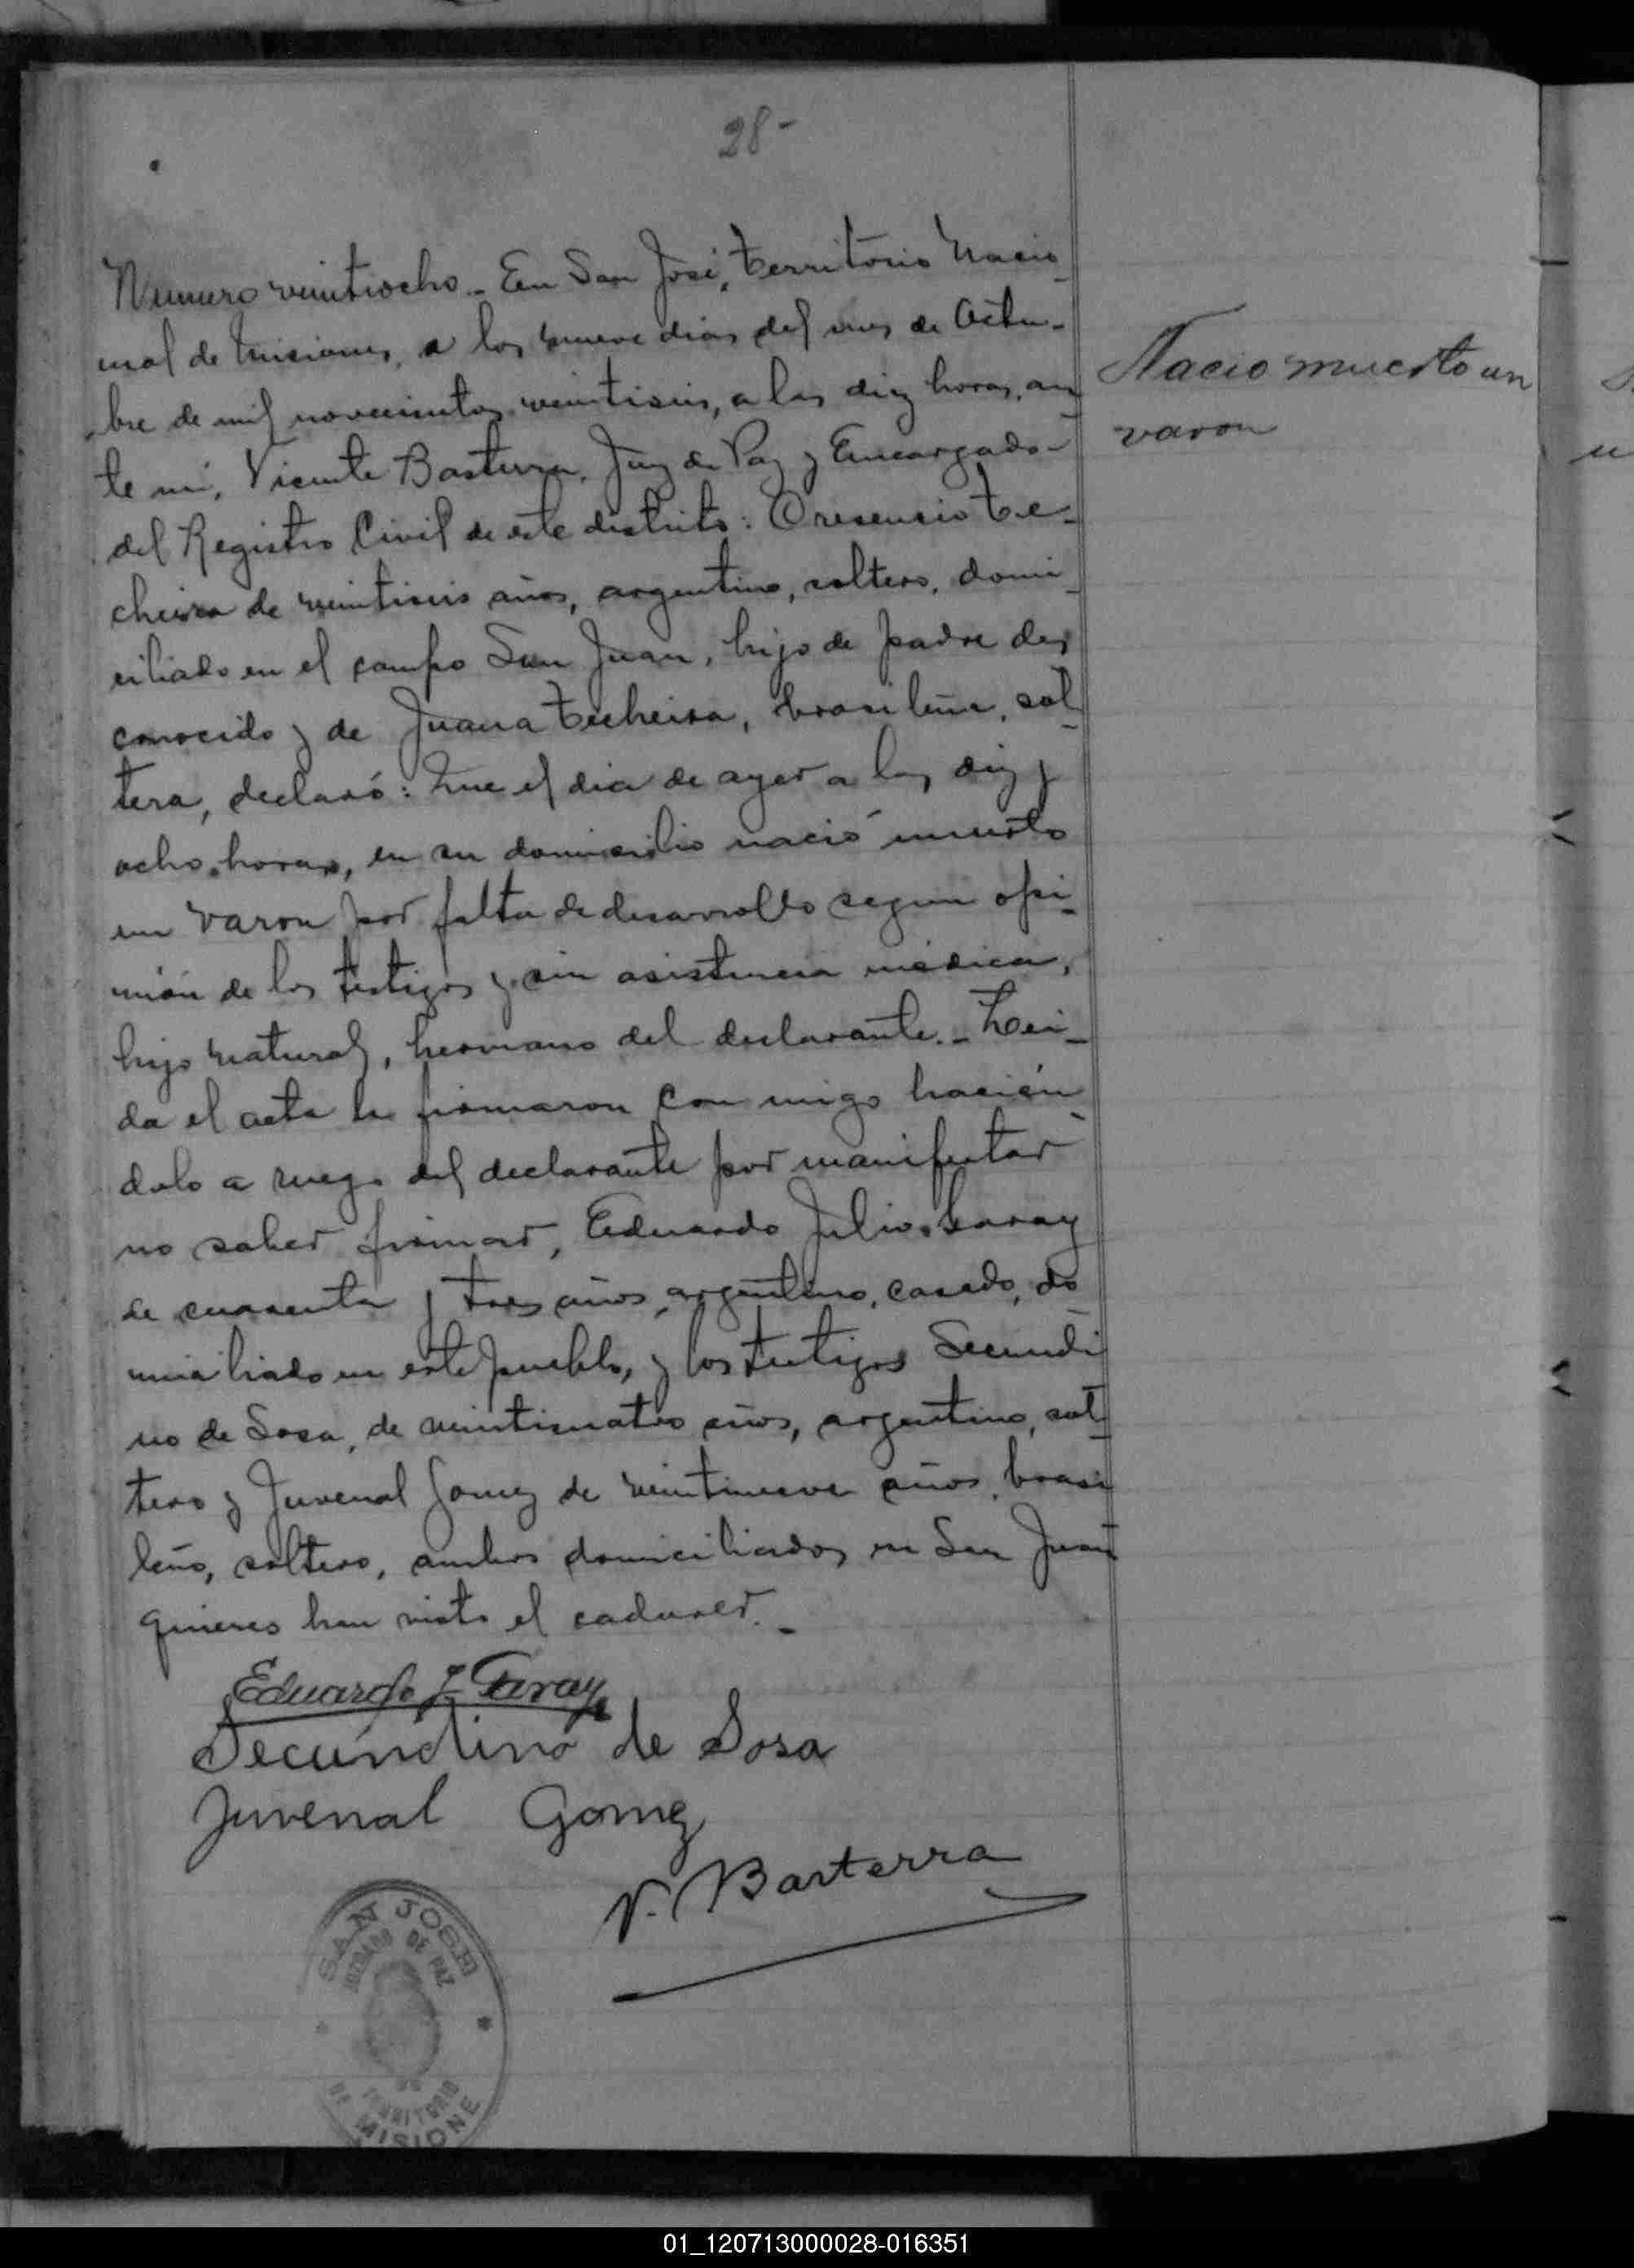 28-
Numero veintiocho_ En San José, territorio Nacio_
nal de Misiones, a los nueve dias del mes de Octu-
bre de mil novecientos veintiseis, a las diez horas, an
te mi, Vicente Basterra, Juez de Paz y Encargado-
del Registro Civil de este distrito: Cresencio Te_
cheira de veintiseis años, argentino, soltero, domi_
ciliado en el campo San Juan, hijo de padre des
conocido y de Juana Techeira, brasileña, sol_
tera, declaró: Que el dia de ayer a las diez y
ocho horas, en su domicilio nació muerto
un varon por falta de desarrollo segun opi_
nión de los testigos y sin asistencia médica,
hijo natural, hermano del declarante._ Lei_
da el acta la firmaron con migo hacién_
dolo a ruego del declarante por manifestar
no saber firmar, Eduardo Julio Garay
de cuarenta y tres años, argentino, casado, do
miciliado en este pueblo, y los testigos Secundi_
no de Sosa, de veinticuatro años, argentino, sol_
tero y Juvenal Gomez de veintinueve años, brasi
leño, soltero, ambos domiciliados en San Juan
quienes han visto el cadaver._
Nacio muerto un
varon
Eduardo J. Garay
Secundino de Sosa
Juvenal Gomez
V. Basterra
SAN JOSE
JUZGADO DE PAZ
TERRITORIO
DE MISIONE
01_120713000028-016351